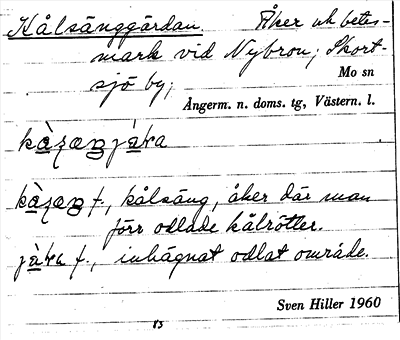 Kålsänggärdan Åker och betes-
mark vid Nybron; Skort-
sjö by;
Mo sn
Ångerm. n. doms. tg, Västern. l.
f., kålsäng, åker där man
förr odlade kålrötter.
f., inhägnat odlat område.
Sven Hiller 1960